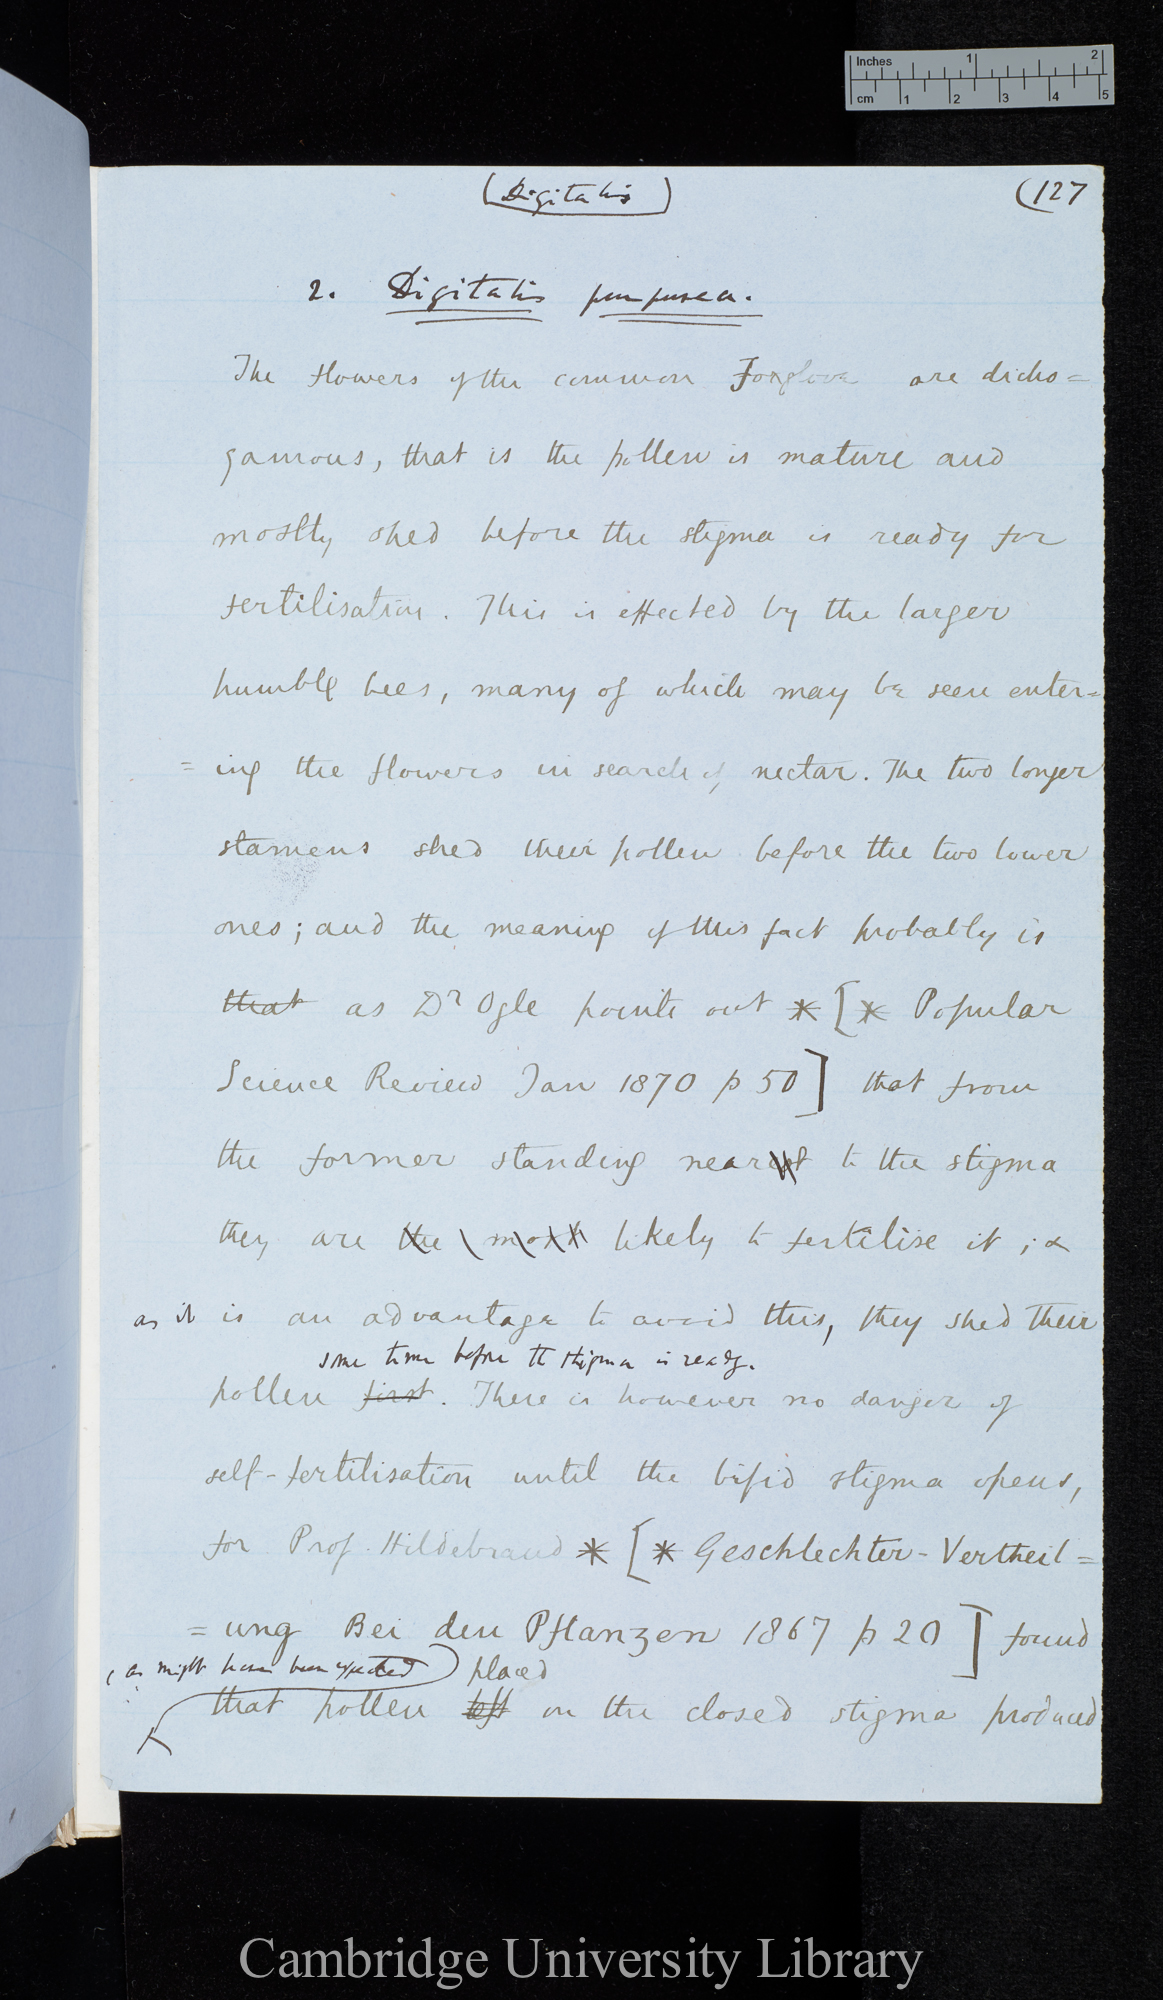 Inches 1 2
cm 1 2 3 4 5
(Digitalis)
(127
2. Digitalis purpurea.
The flowers of the common Foxglove are dicho=
gamous, that is the pollen is mature and
mostly shed before the stigma is ready for
fertilisation. This is effected by the larger
humble bees, many of which may be seen enter=
=ing the flowers in search of nectar. The two longer
stamens shed their pollen before the two lower
ones; and the meaning of this fact probably is
that as Dr Ogle points out * [* Popular
Science Review Jan 1870 p 50] that from
the former standing nearest to the stigma
they are the most likely to fertilise it; &
as it is an advantage to avoid this, they shed their
some time before the stigma is ready.
pollen first. There is however no danger of
self-fertilisation until the bifid stigma opens,
for Prof. Hildebrand * [* Geschlechter-Vertheil=
=ung Bei den Pflanzen 1867 p 20] found
(as might have been expected) placed
that pollen left on the closed stigma produced
Cambridge University Library